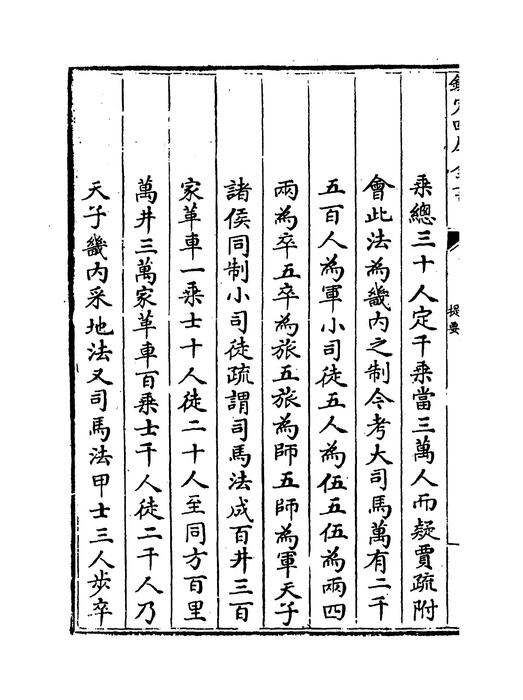 提要
乘總三十人定千乘當三萬人而疑賈疏附
會此法為畿内之制今考大司馬萬有二千
五百人為軍小司徒五人為伍五伍為兩四
兩為卒五卒為旅五旅為師五師為軍天子
諸侯同制小司徒疏謂司馬法成百井三百
家革車一乘士十人徒二十人至同方百里
萬井三萬家革車百乘士千人徒二千人乃
天子畿内采地法又司馬法甲士三人步卒